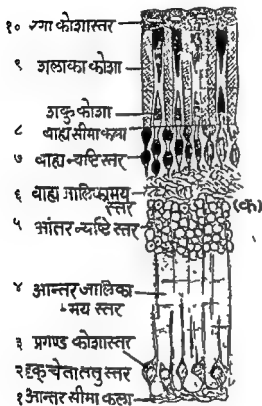 १० रगा कोशास्तर
९ शलाका कोशा
शकु कोशा
८ बाह्य सीमा कला
७ बाह्य न्यष्टि स्तर
६ बाह्य जालिकामय
स्तर
(क)
५ आंतर न्यष्टि स्तर
४ आन्तर जालिका
मय स्तर
३ प्रगण्ड कोशास्तर
२ दृक् चेता तंतु स्तर
१ आन्तर सीमा कला